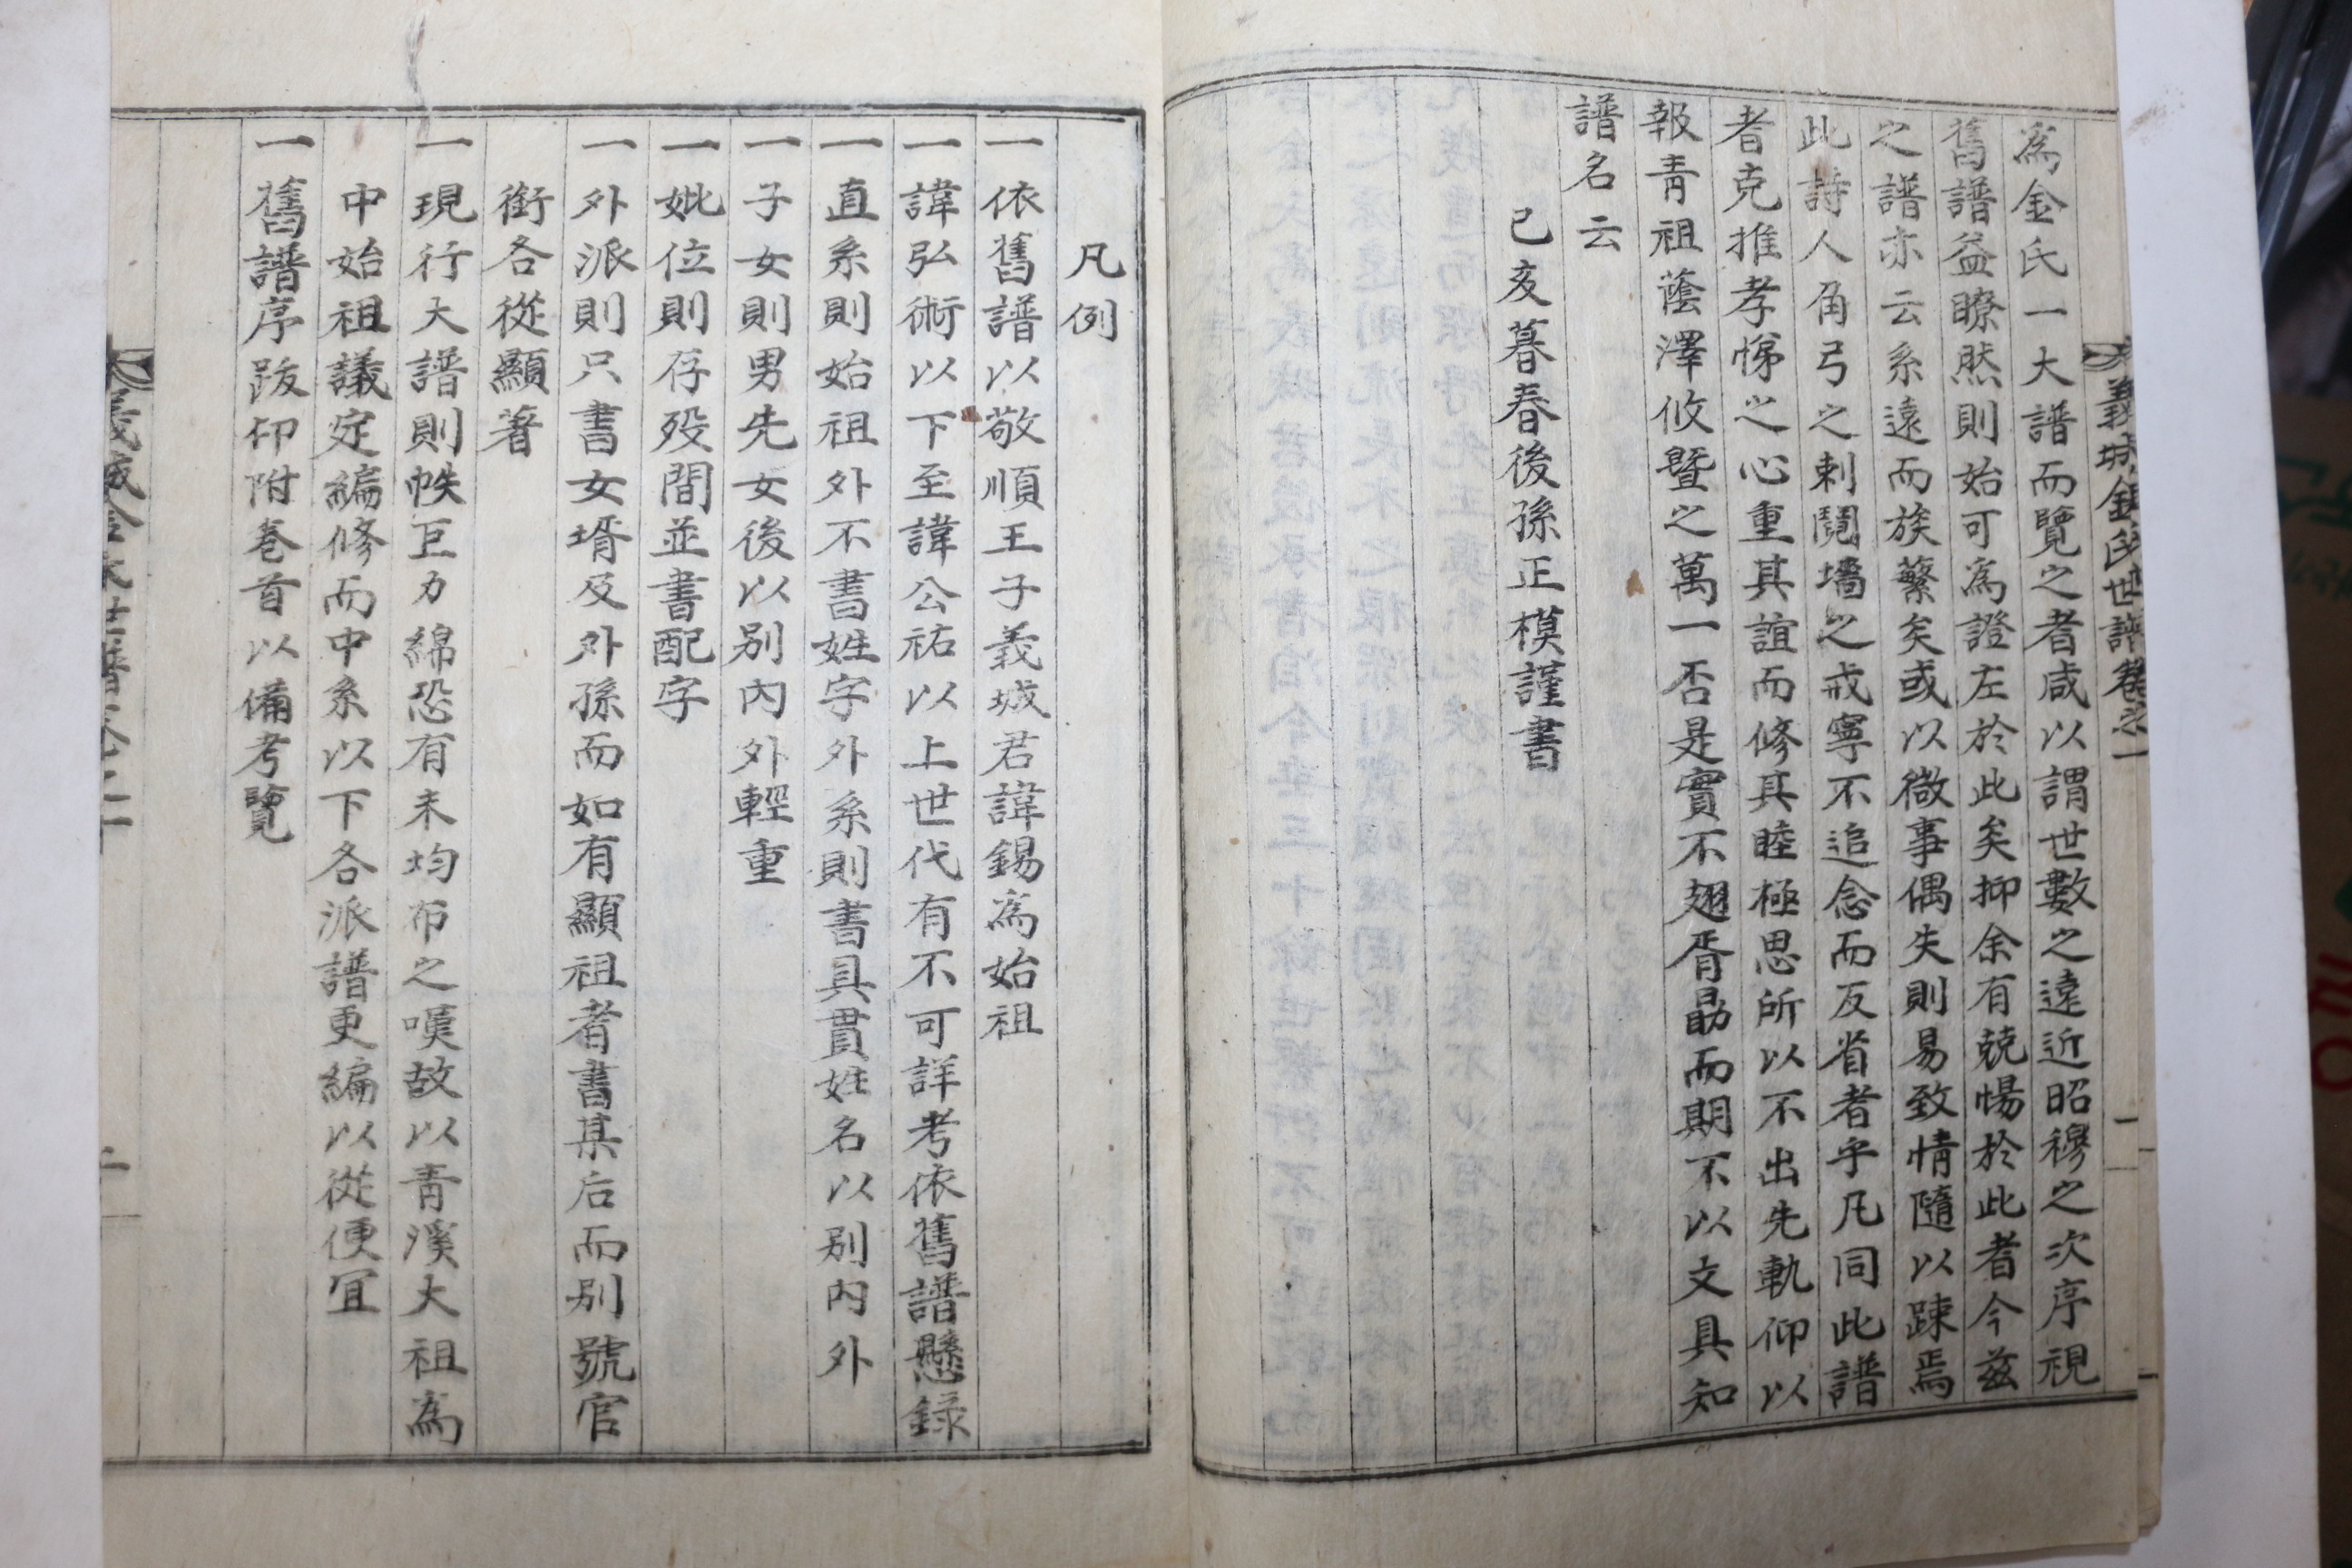 義城金氏世譜卷之一
一
為金氏一大譜而覽之者咸以謂世數之遠近昭穆之次序視
舊譜益瞭然則始可為證左於此矣抑余有兢惕於此者今玆
之譜亦云系遠而族蘩矣或以微事偶失則易致情隨以踈焉
此詩人角弓之刺鬩墻之戒寧不追念而反省者乎凡同此譜
者克推孝悌之心重其誼而修其睦極思所以不出先軌仰以
報靑祖蔭澤攸曁之萬一否是實不翅胥勗而期不以文具知
譜名云
己亥暮春後孫正模謹書
凡例
一依舊譜以敬順王子義城君諱錫為始祖
一諱弘術以下至諱公祐以上世代有不可詳考依舊譜懸錄
一直系則始祖外不書姓字外系則書具貫姓名以別內外
一子女則男先女後以別內外輕重
一妣位則存歿間並書配字
一外派則只書女壻及外孫而如有顯祖者書某后而別號官
銜各從顯著
一現行大譜則帙巨力綿恐有未均布之嘆故以靑溪大祖為
中始祖議定編修而中系以下各派譜更編以從便冝
一舊譜序跋仰附卷首以備考覽